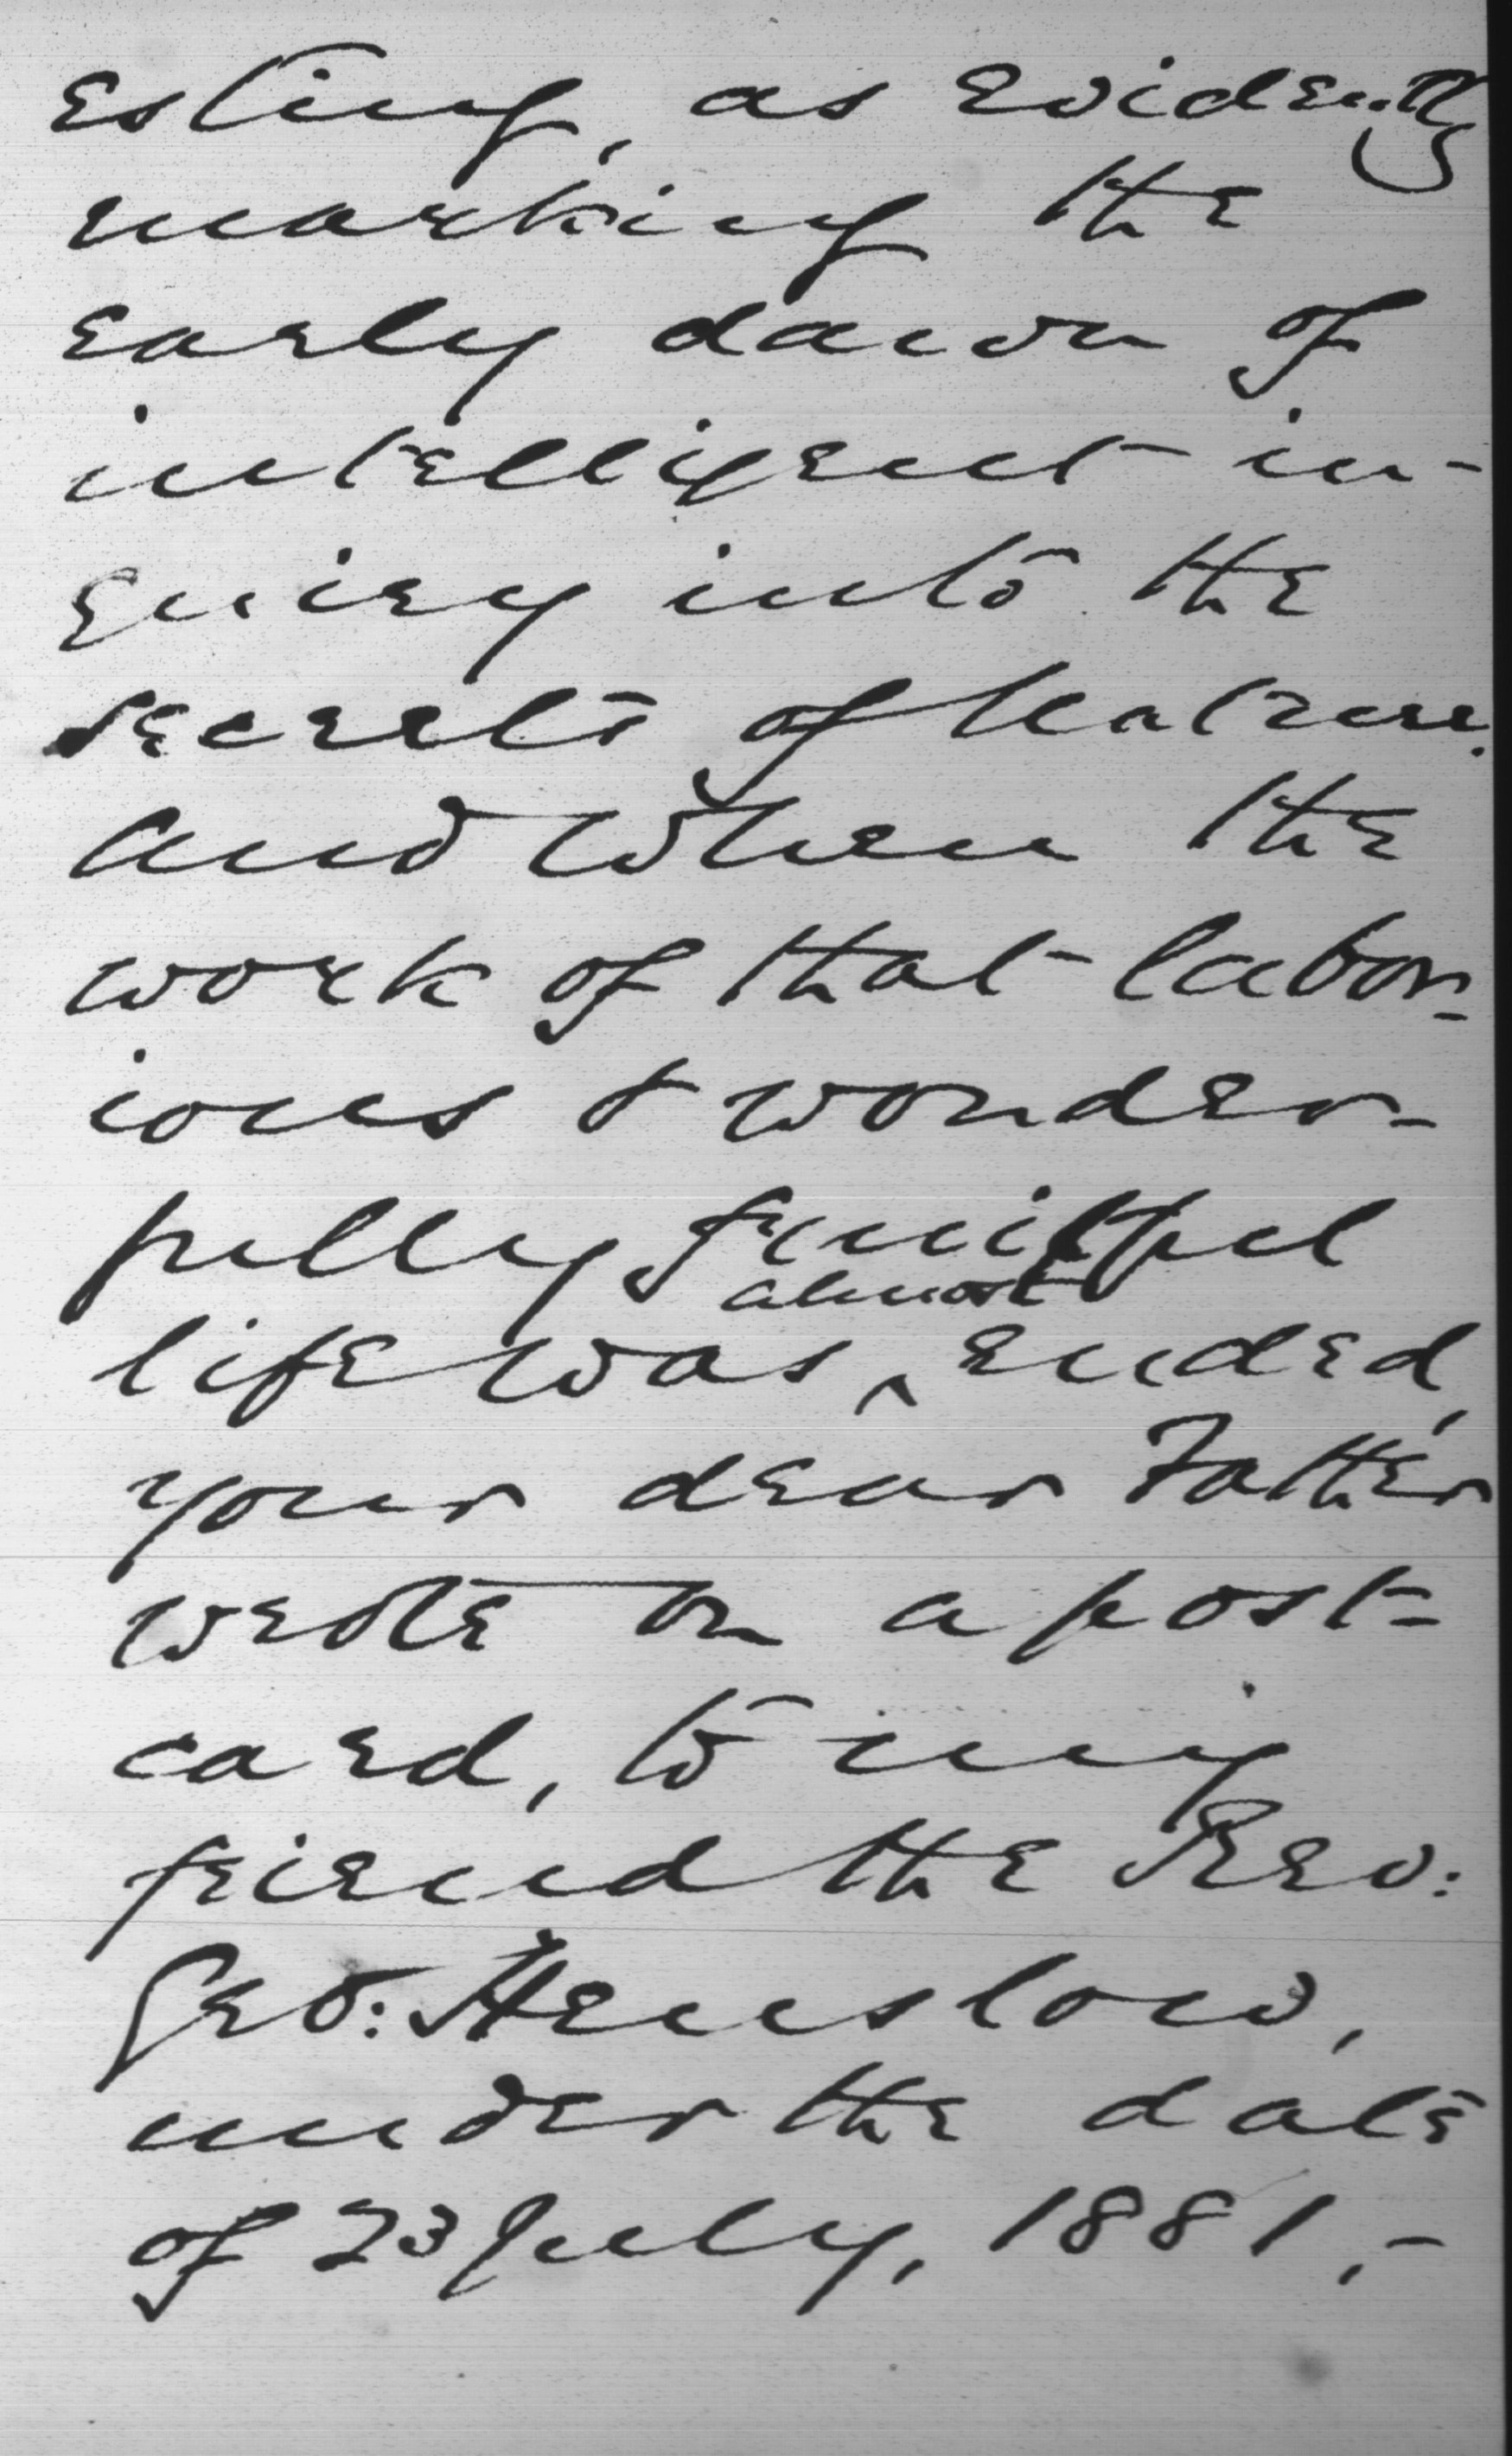 esting, as evidently
marking the
early dawn of
intelligent in-
quiry into the
secrets of Nature.
And when the
work of that labor-
ious & wonder-
fully fruitful
almost
life was ^ ended,
your dear Father
wrote on a post-
card, to my
friend the Rev:
Geo: Henslow,
under the date
of 23 July, 1881,-